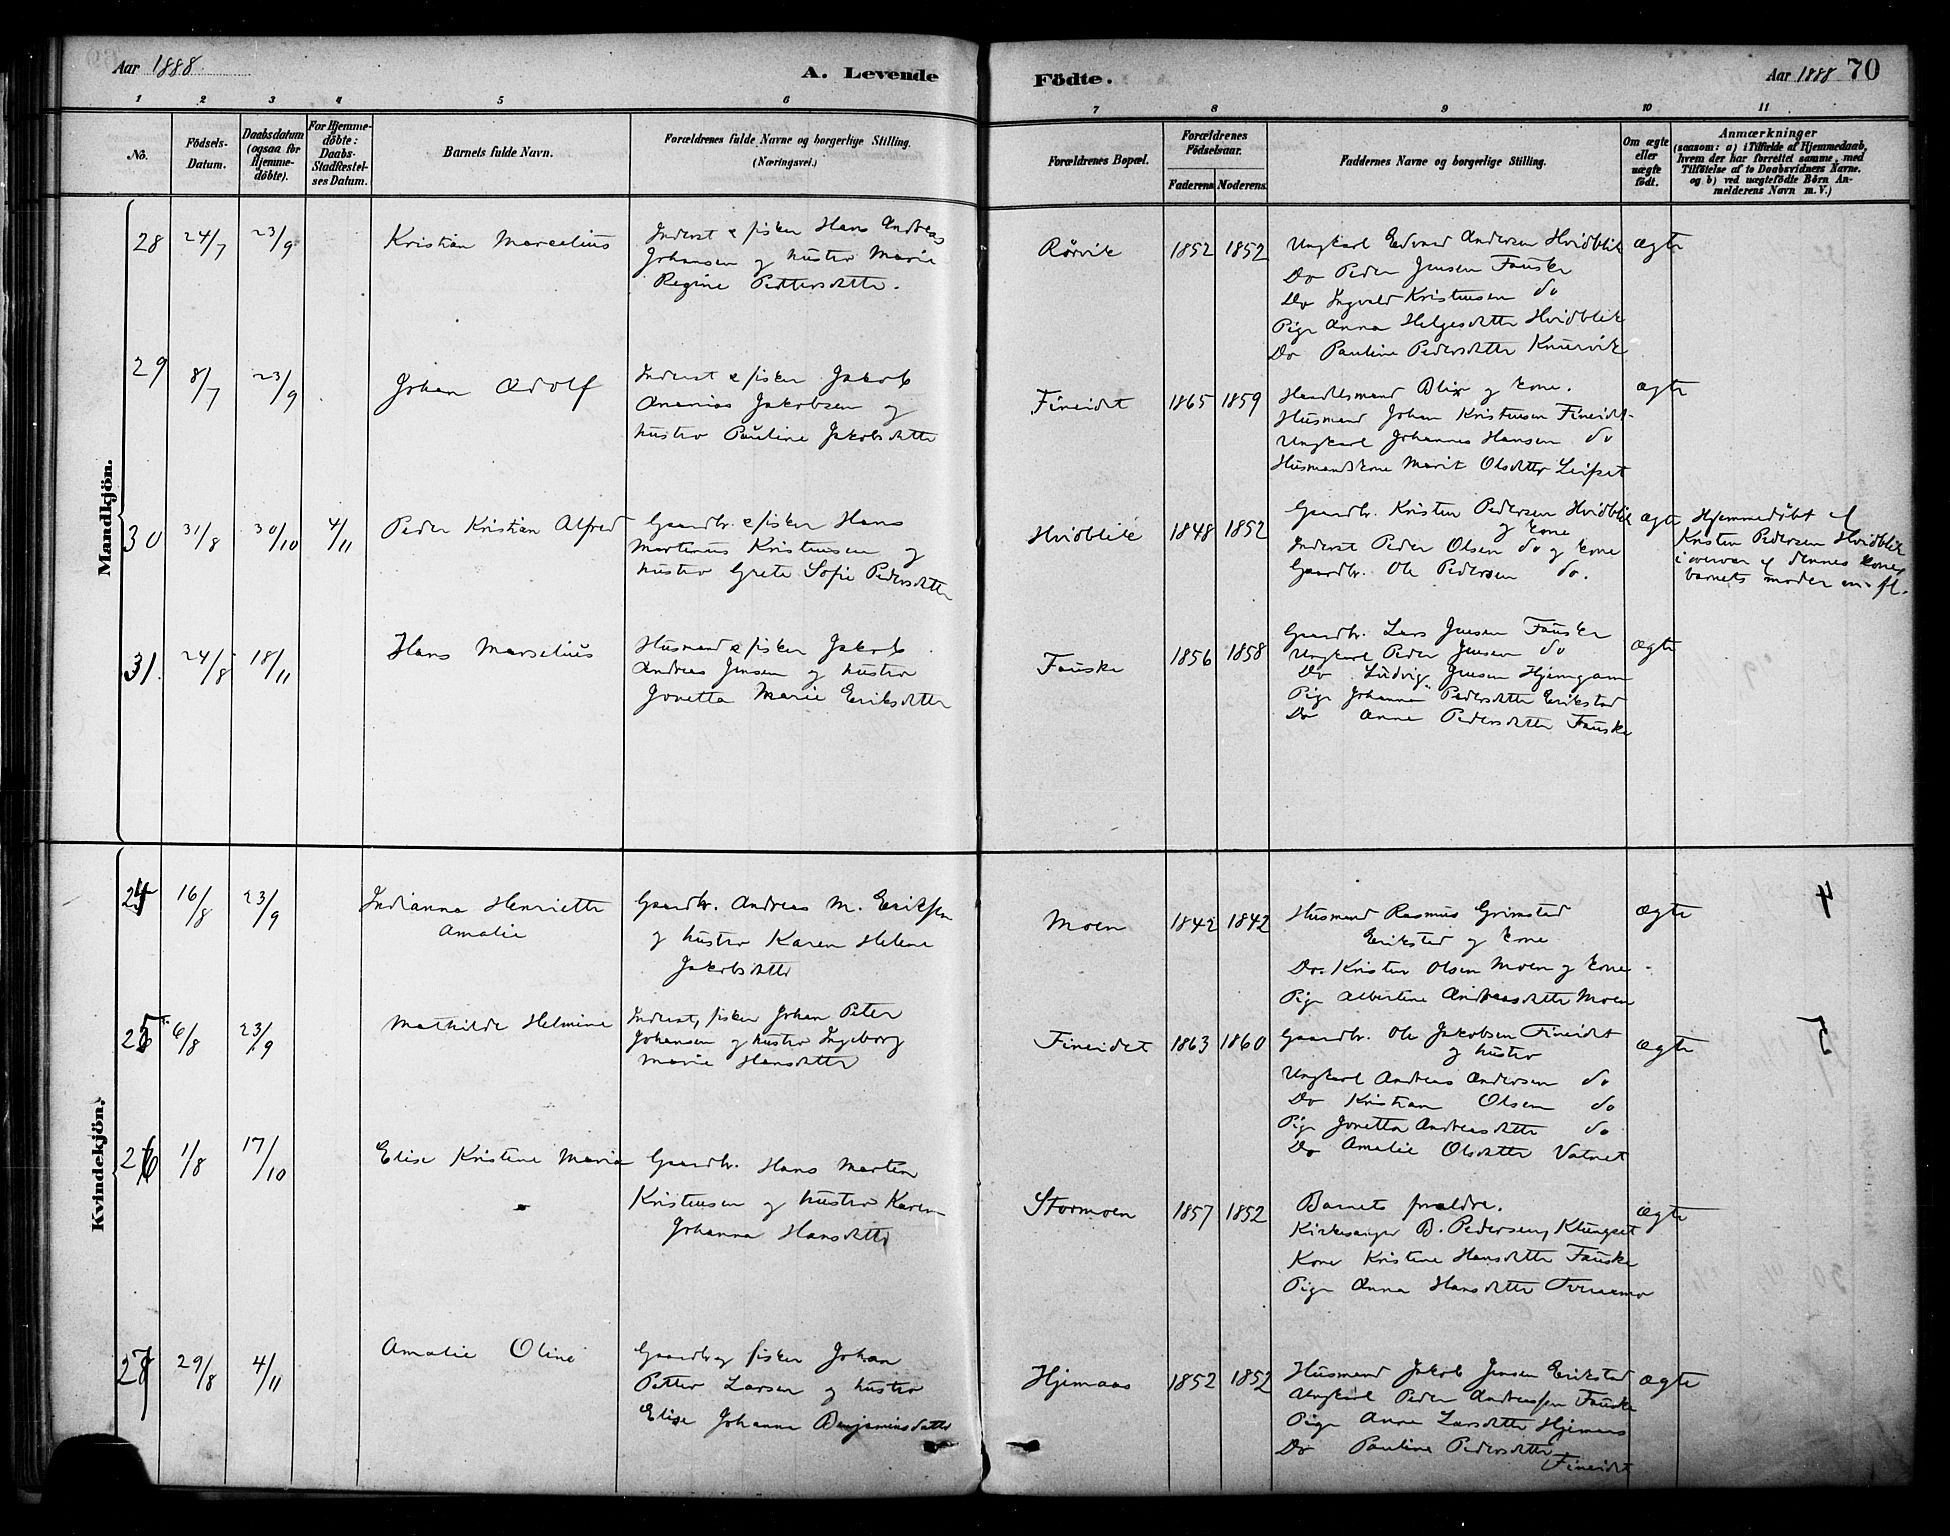 Aar 1888
A. Levende
Fødte.
Aar 1888 70
1 2 3 4 5 6 7 8 9 10 11
No.
Fødsels-Datum.
Daabsdatum (ogsaa for Hjemmedøbte).
For Hjemmedøbte: Daabs-Stadfæstelses Datum.
Barnets fulde Navn.
Forældrenes fulde Navne og borgerlige Stilling. (Næringsvei.)
Forældrenes Bopæl.
Forældrenes Fødselsaar.
Faderens. Moderens.
Faddernes Navne og borgerlige Stilling.
Om ægte eller uægte født.
Anmærkninger
(saasom: a) i Tilfælde af Hjemmedaab, hvem der har forrettet samme, med Tilføielse af to Daabsvidners Navne. og b) ved uægtefødte Børn Anmelderens Navn m. V.)
Mandkjön.
28 24/7 23/9
Kristian Marcelius
Inderst & fisker Hans Andreas
Johansen og hustro Marie
Regine Pettersdatter.
Rørvik 1852 1852
Ungkarl Edvard Andersen Hvidblik
Do Peder Jensen Fauske
Do Ingvald Kristensen do
Pige Anna Helgesdatter Hvidblik
Do Pauline Pedersdatter
ægte
29 8/7 23/9
Johan Adolf
Inderst & fisker Jakob
Ananias Jakobsen og
hustro Pauline Jakobsdatter
Fineidet 1865 1859
Handelsmand Blix og kone.
Husmand Johan Kristensen Fineidet
Ungkarl Johannes Hansen do
Husmandskone Marit Olsdatter Leifset
ægte
30 31/8 30/10 4/11
Peder Kristian Alfred
Gaardbr. & fisker Hans
Martinus Kristensen og
hustro Grete Sofie Pedersdatter
Hvidblik 1848 1852
Gaardbr. Kristen Pedersen Hvidblik
og kone
Inderst Peder Olsen do og kone
Gaardbr. Ole Pedersen do.
ægte
Hjemmedøbt af
Kristen Pedersen Hvidblik
i overvær af dennes kone,
barnets moder m. fl.
31. 24/8 18/11
Hans Marselius
Husmand & fisker Jakob
Andreas Jensen og hustro
Jonetta Marie Eriksdatter
Fauske 1856 1858
Gaardbr. Lars Jensen Fauske
Ungkarl Peder Jensen do
Do Ludvig Jensen Hjemgam
Pige Johanna Pedersdatter Erikstad
Do Anne Pedersdatter Fauske
ægte
Kvindekjön.
24 16/8 23/9
Indianna Henriette
Amalie
Gaardbr. Andreas M. Eriksen
og hustro Karen Helene
Jakobsdatter
Moen 1842 1842
Husmand Rasmus Grimstad
Erikstad og kone
Do. Kristen Olsen Moen og kone
Pige Albertine Andreasdatter Moen
ægte
4
25 6/8 23/9
Mathilde Helmine
Inderst, fisker Johan Peter
Johansen og hustro Ingeborg
Marie Hansdatter
Fineidet 1863 1860
Gaardbr. Ole Jakobsen Fineidet
og hustro
Ungkarl Andreas Andersen do
Do Kristian Olsen do
Pige Jonetta Andreasdatter do
Do Amalie Olsdatter Vatnet
ægte
5
26 1/8 17/10
Elise Kristine Marie
Gaardbr. Hans Martin
Kristensen og hustro Karen
Johanna Hansdatter
Stormoen 1857 1852
Barnets forældre.
Kirkesanger B. Pedersen, Klungset
Kone Kristine Hansdatter Fauske
Pige Anna Hansdatter Tveraamo
ægte
27 29/8 4/11
Amalie Oline
Gaardbr og fisker Johan
Petter Larsen og hustro
Elise Johanna Benjaminsdatter
Hjemaas 1852 1852
Husmand Jakob Jensen Erikstad
Ungkarl Peder Andreassen Fauske
Pige Anne Larsdatter Hjemaas
Do Pauline Pedersdatter
Fineidet
ægte